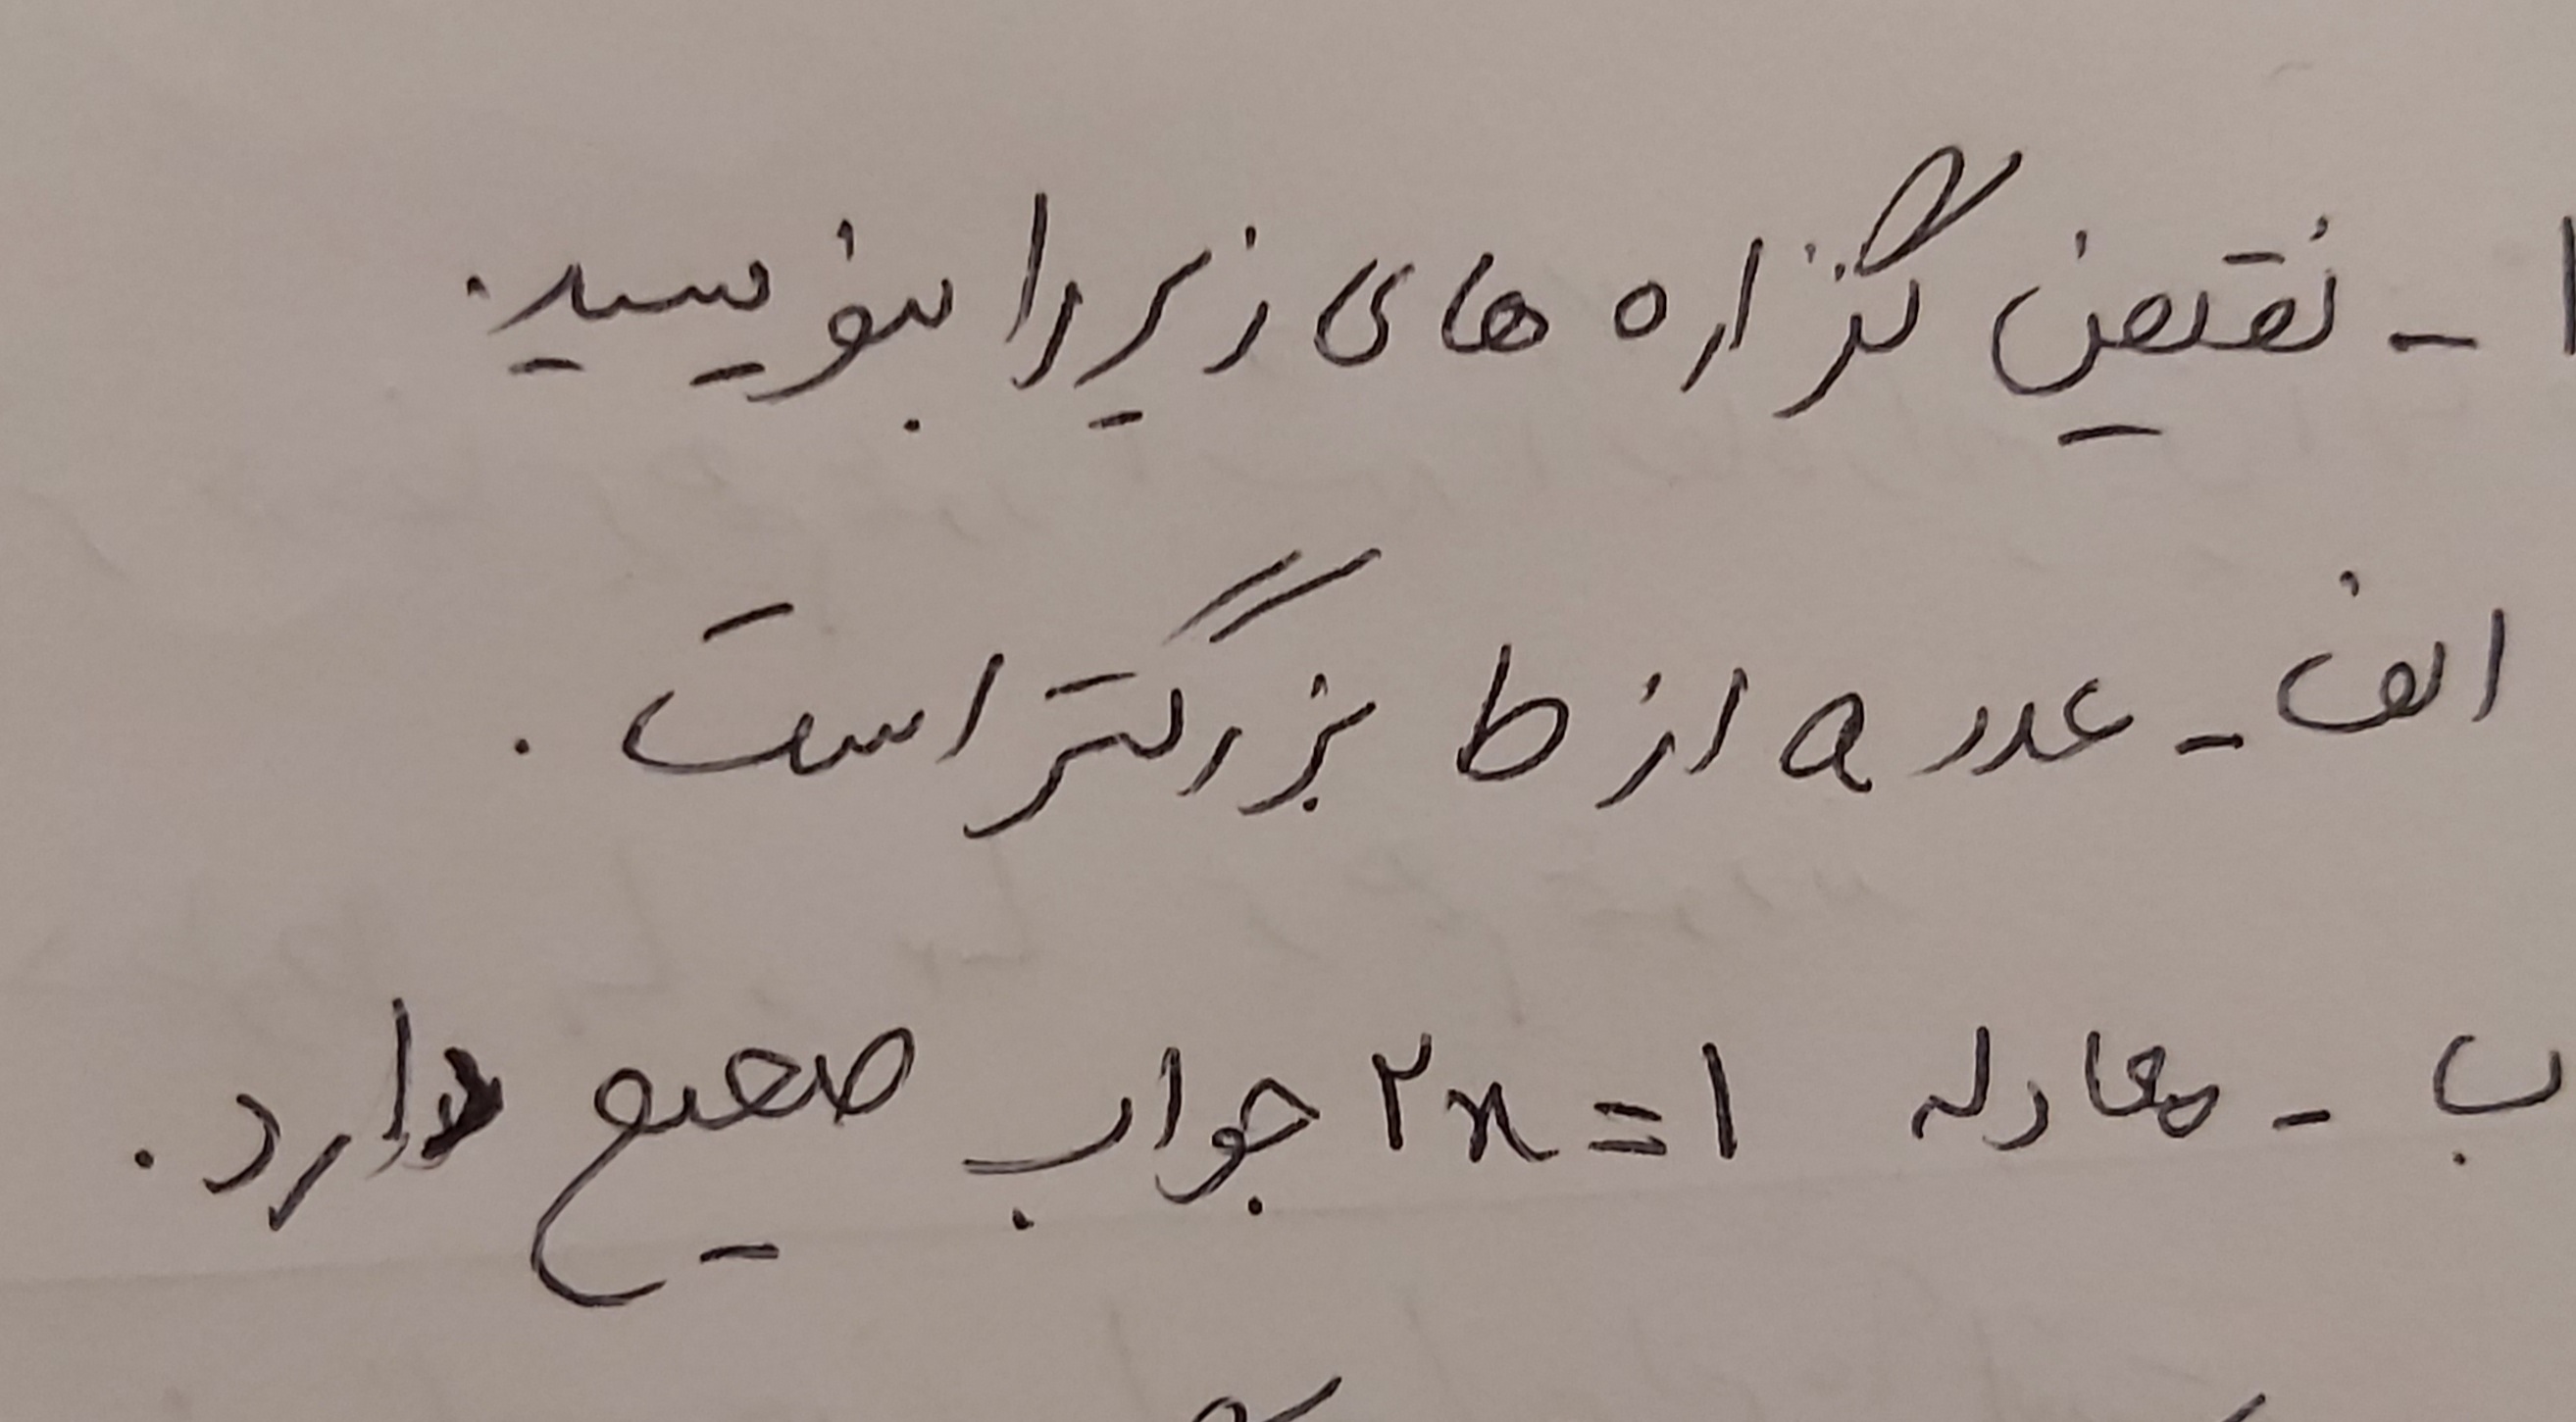 ۱ - نقیض گزاره های زیر را بنویسید.
الف - عدد a از b بزرگتر است.
ب - معادله ۲x = ۱ جواب صحیح دارد.